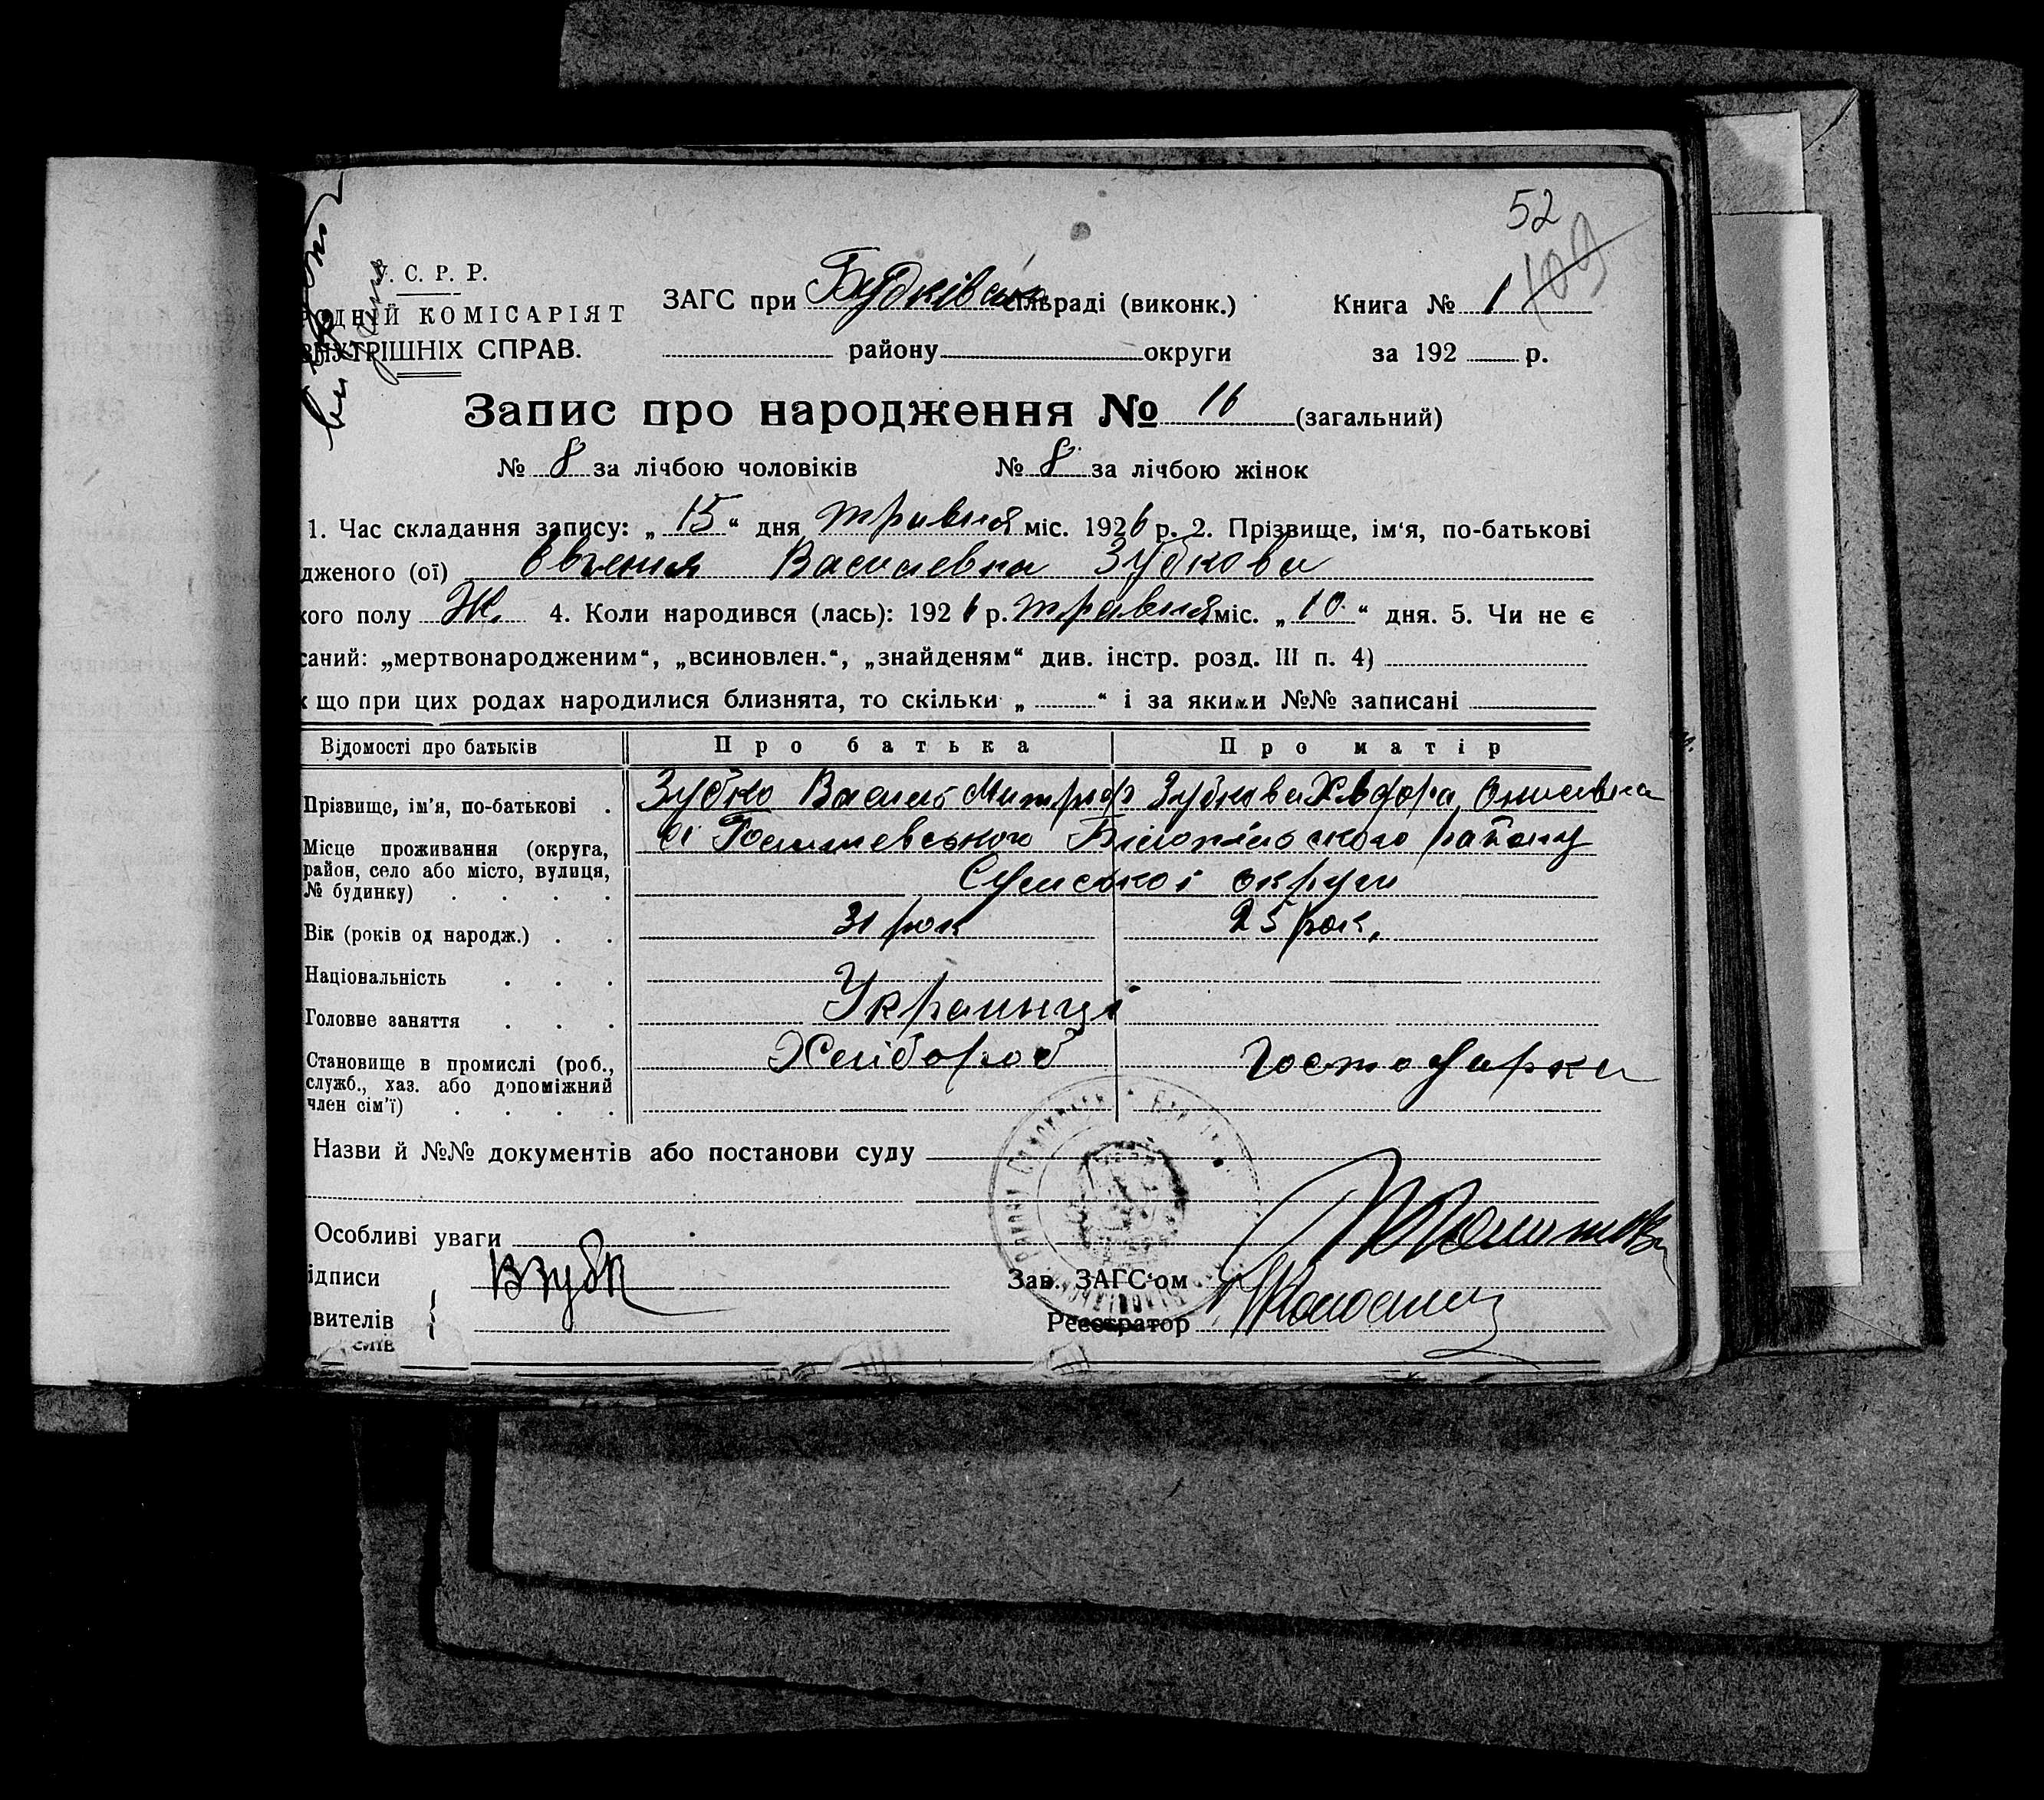 52
109
У. С. Р. Р.
РОДНІЙ КОМІСАРІЯТ
ВНУТРІШНІХ СПРАВ.
ЗАГС при Будківськ сільраді (виконк.)
району округи
Книга № 1
за 192 р.
Запис про народження № 16 (загальний)
№ 8 за лічбою чоловіків № 8 за лічбою жінок
1. Час складання запису: „ 15 “ дня травня міс. 1926 р. 2. Прізвище, ім‘я, по-батькові
дженого (ої) Евгенія Василевна Зубкова
кого полу Ж. 4. Коли народився (лась): 1926 р. травня міс. „ 10 “ дня. 5. Чи не є
саний: „мертвонародженим“, „всиновлен.“, „знайденям“ див. інстр. розд. III п. 4)
що при цих родах народилися близнята, то скільки „ “ і за якими №№ записані
Відомості про батьків Про батька Про матір
Прізвище, ім‘я, по-батькові . Зубко Василь Митроф Зубкова Хведора
Місце проживання (округа, район, село або місто, вулиця, № будинку) . . . . Білопільского району
Сумської округи
Вік (років од народж.) . . 31 рок 25 рок.
Національність . . .
Головне заняття . . . Украинці
Становище в промислі (роб., служб., хаз. або допоміжний член сім‘ї) . . . . Хлібороб Господарка
Назви й №№ документів або постанови суду
Особливі уваги
ідписи
вителів
Зав. ЗАГС‘ом
Реєстратор